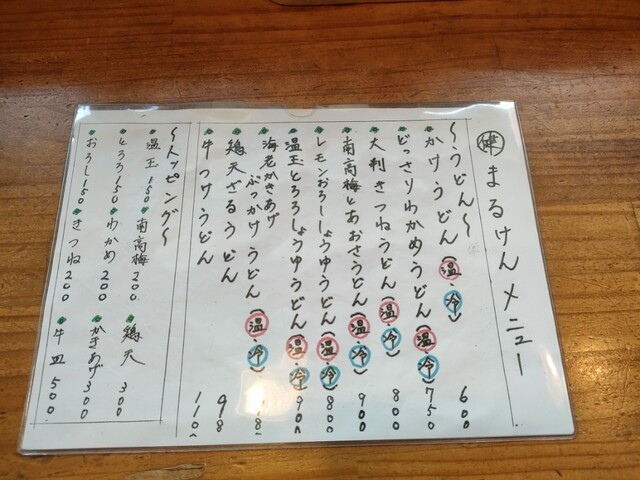 健 まるけんメニュー
～うどん～
かけうどん(温・冷) 600
どっさりわかめうどん(温・冷) 750
大判きつねうどん(温・冷) 800
南高梅とあおさうどん(温・冷) 900
レモンおろししょうゆうどん(温・冷) 800
温玉とろろしょうゆうどん(温・冷) 900
海老かきあげ
ぶっかけうどん(温・冷)
鶏天ざるうどん
牛つけうどん
～トッピング～
温玉150 南高梅200 鶏天300
とろろ150 わかめ200 かきあげ300
おろし150 きつね200 牛皿500